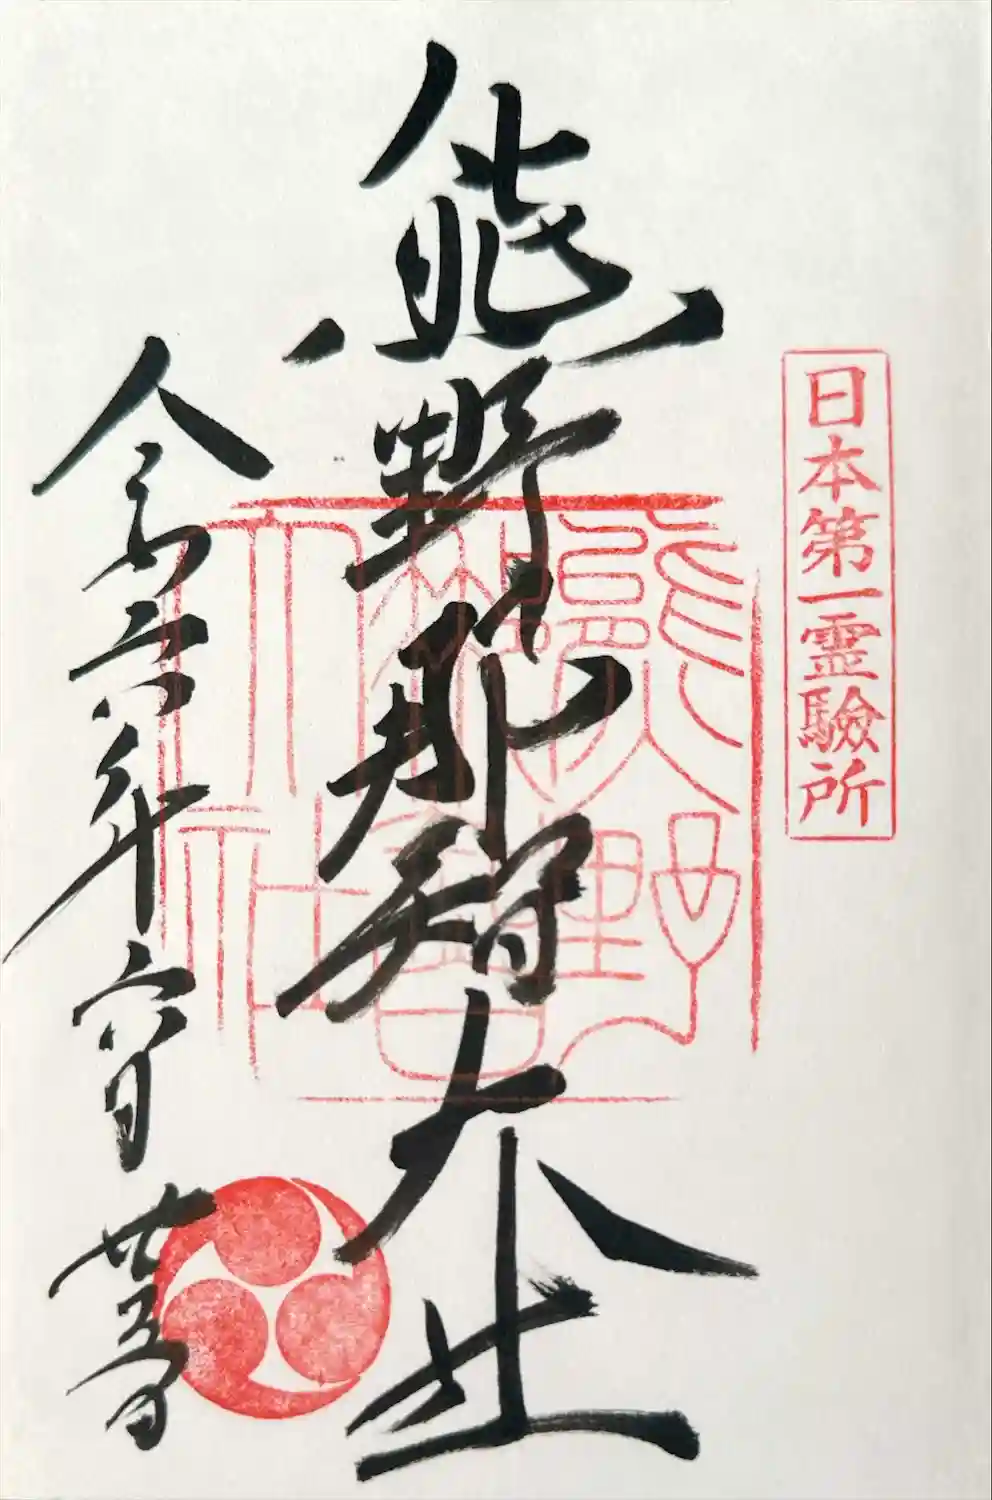 日本第一霊驗所
熊野那智大社
熊野那智大社
令和六年六月廿五日